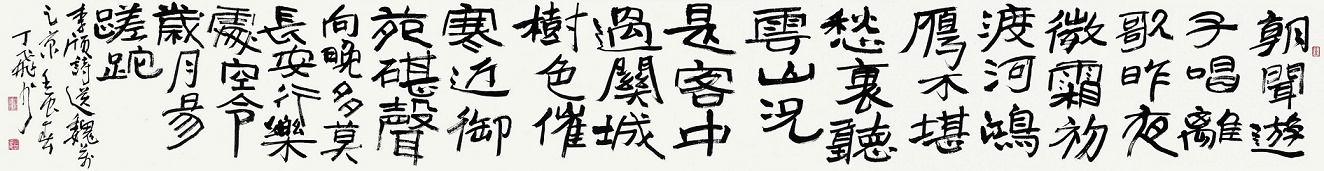 朝聞遊
子唱離
歌昨夜
微霜初
渡河鴻
鴈不堪
愁裏聽
雲山況
是客中
過關城
樹色催
寒近御
苑碪聲
向晚多莫
長安行樂
處空令
歲月易
蹉跎
李頎詩送魏萬
之京壬辰春
丁飛